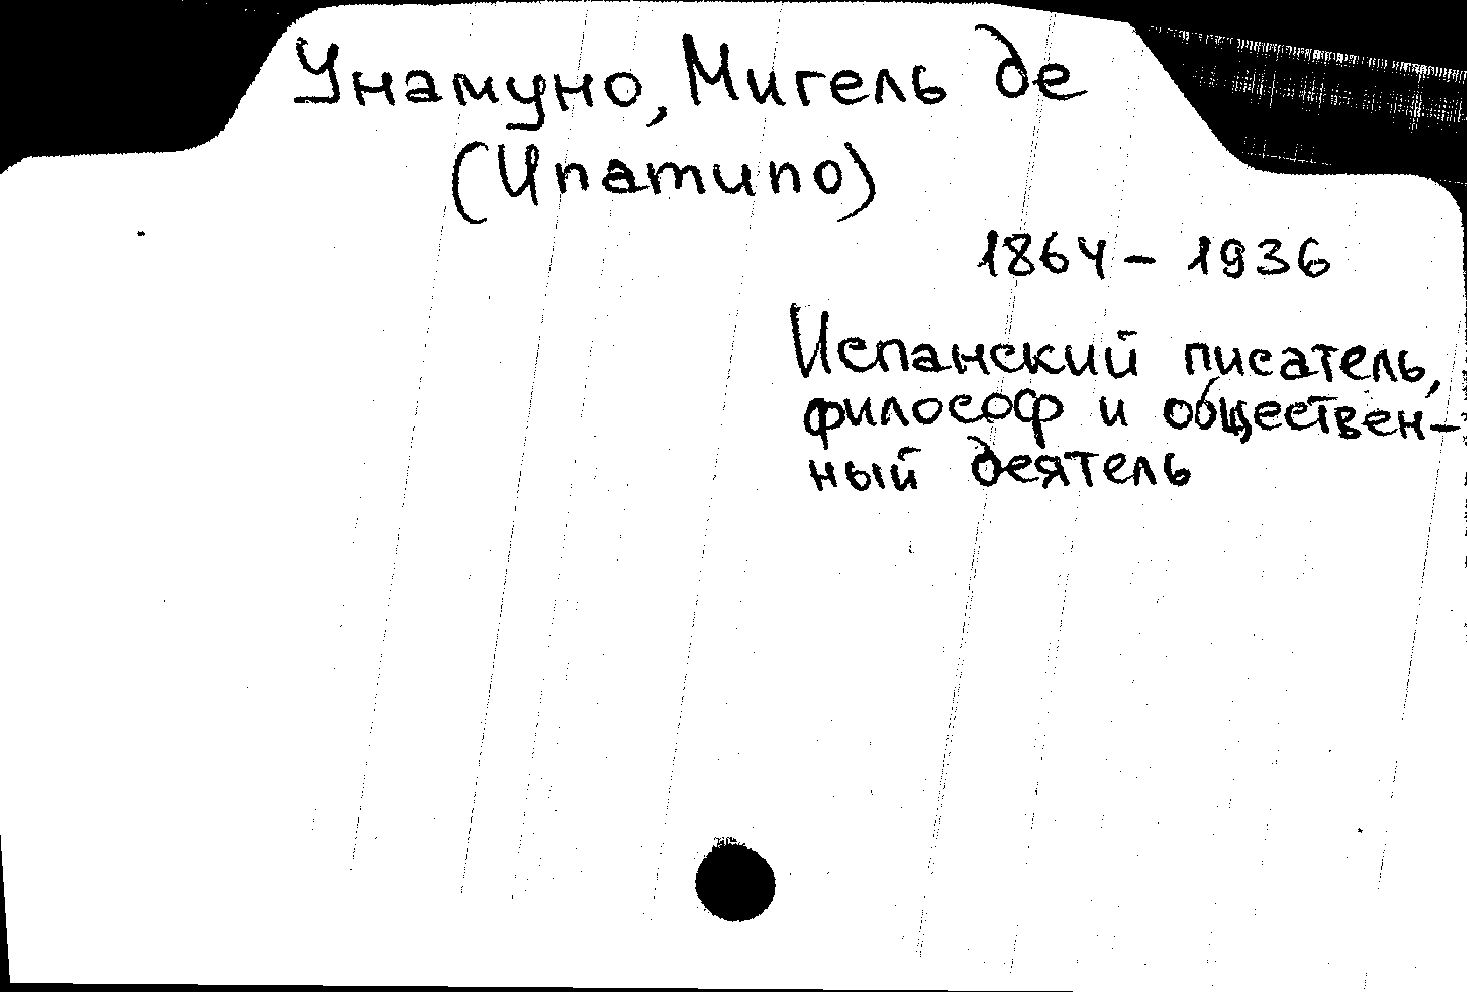 Унамуно, Мигель де
(Ипатипо)
1864 – 1936
Испанский писатель,
философ и обществен-
ный деятель